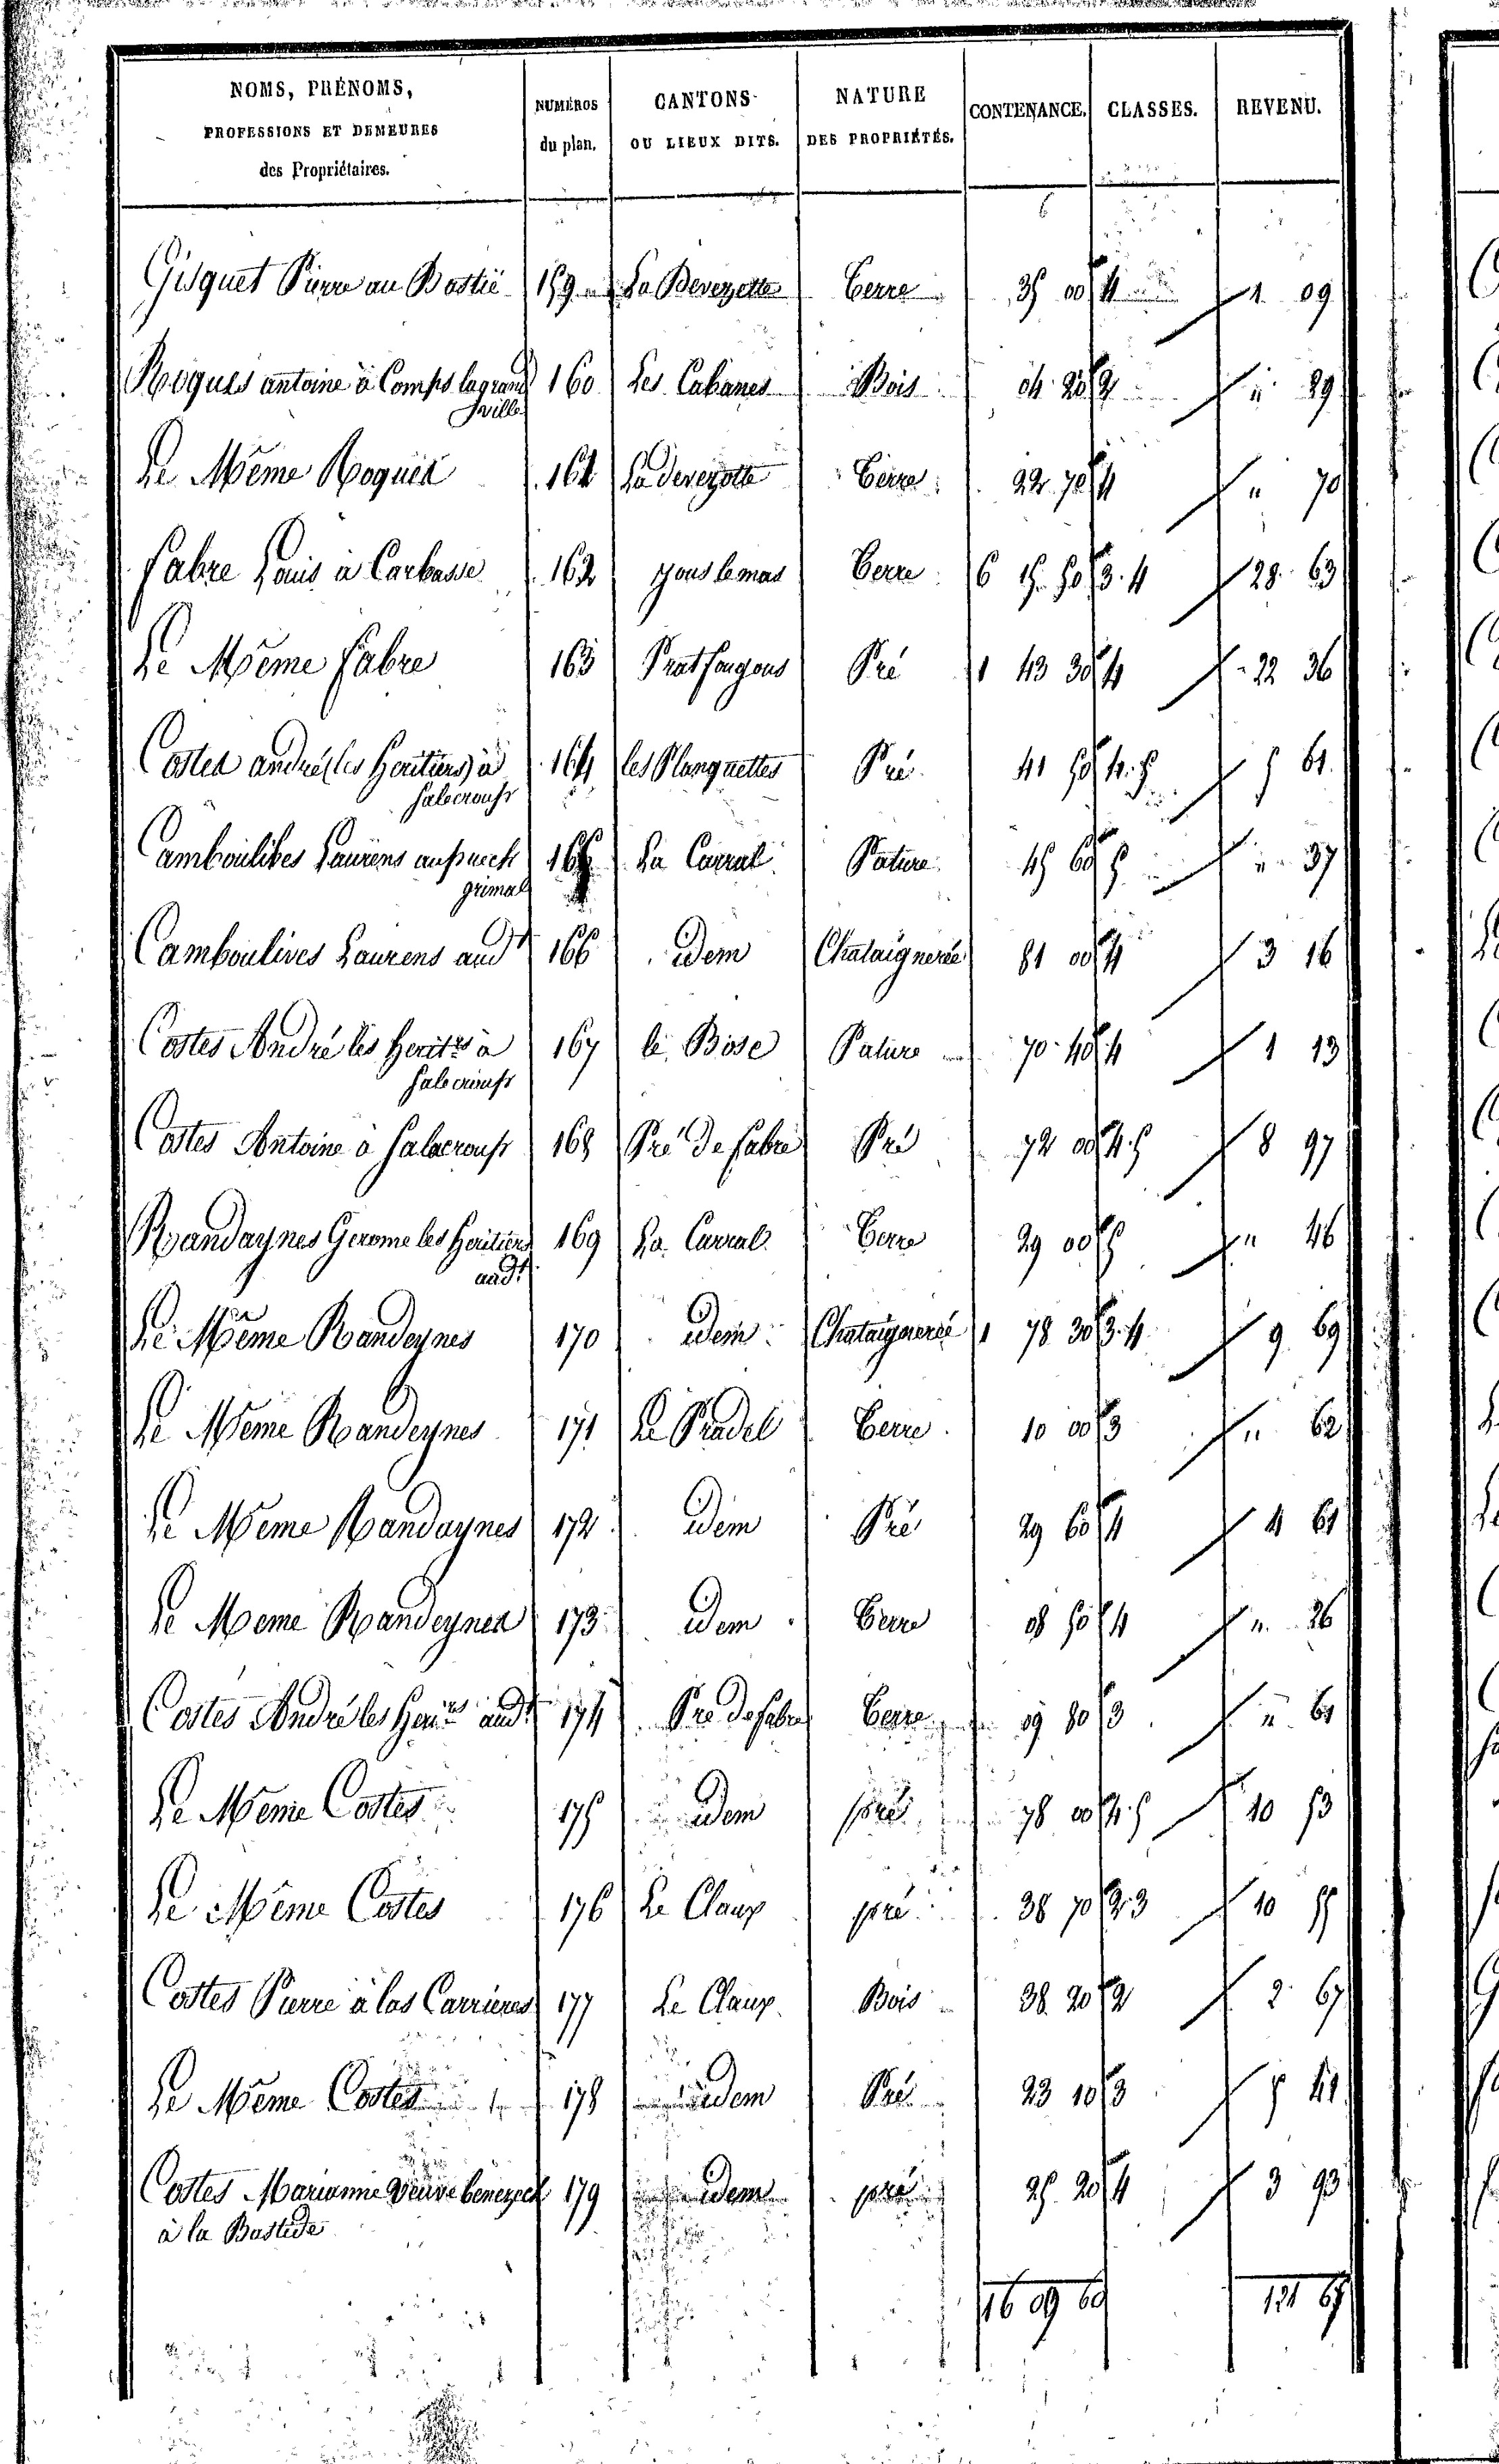 NOMS, PRÉNOMS, PROFESSIONS ET DEMEURES des Propriétaires. | NUMÉROS du plan. | CANTONS OU LIEUX DITS. | NATURE DES PROPRIÉTÉS. | CONTENANCE. | CLASSES. | REVENU.
Gisquet Pierre au Bastié 159 La Devezette Terre 35 00 4 1 09
Roques antoine à Comps lagrand 160 Les Cabanes Bois 04 20 2 " 29
ville
Le Même Roques 161 La devezette Terre 22 70 4 " 70
Fabre Louis à Carbasse 162 sous le mas Terre 6 15 50 3.4 28 63
Le Même Fabre 163 Prat fangous Pré 1 43 30 4 22 36
Costes andré (les Heritiers) à 164 les Planquettes Pré 41 50 4.5 5 61
Salecroup
Camboulibes Laurens aupuech 165 La Carral Pature 45 60 5 " 37
grimal
Camboulives Laurens aud.t 166 idem Chataigneraie 81 00 4 3 16
Costes André les Herit.rs à 167 le Bose Pature 70 40 4 1 13
Salecroup
Costes Antoine à Salecroup 168 Pré de fabre Pré 72 00 4.5 8 97
Randaynes Gerome les Heritiers 169 La Carral Terre 29 00 5 " 46
aud.t
Le Même Randeynes 170 idem Chataigneraie 1 78 30 3.4 9 69
Le Même Randeynes 171 Le Pradel Terre 10 00 3 " 62
Le Meme Randaynes 172 idem Pré 29 60 4 4 61
Le Meme Randeynes 173 idem Terre 08 50 4 " 26
Costes André les Herit.rs aud.t 174 Pré de fabre Terre 09 80 3 " 61
Le Meme Costes 175 idem pré 78 00 4.5 10 53
Le Même Costes 176 Le Claux pré 38 70 2.3 10 55
Costes Pierre à las Carrieres 177 Le Claux Bois 38 20 2 2 67
Le Même Costes 178 idem Pré 23 10 3 5 41
Costes Marianne Veuve benezech 179 idem pré 25 20 4 3 93
à la Bastide
16 09 60 121 65